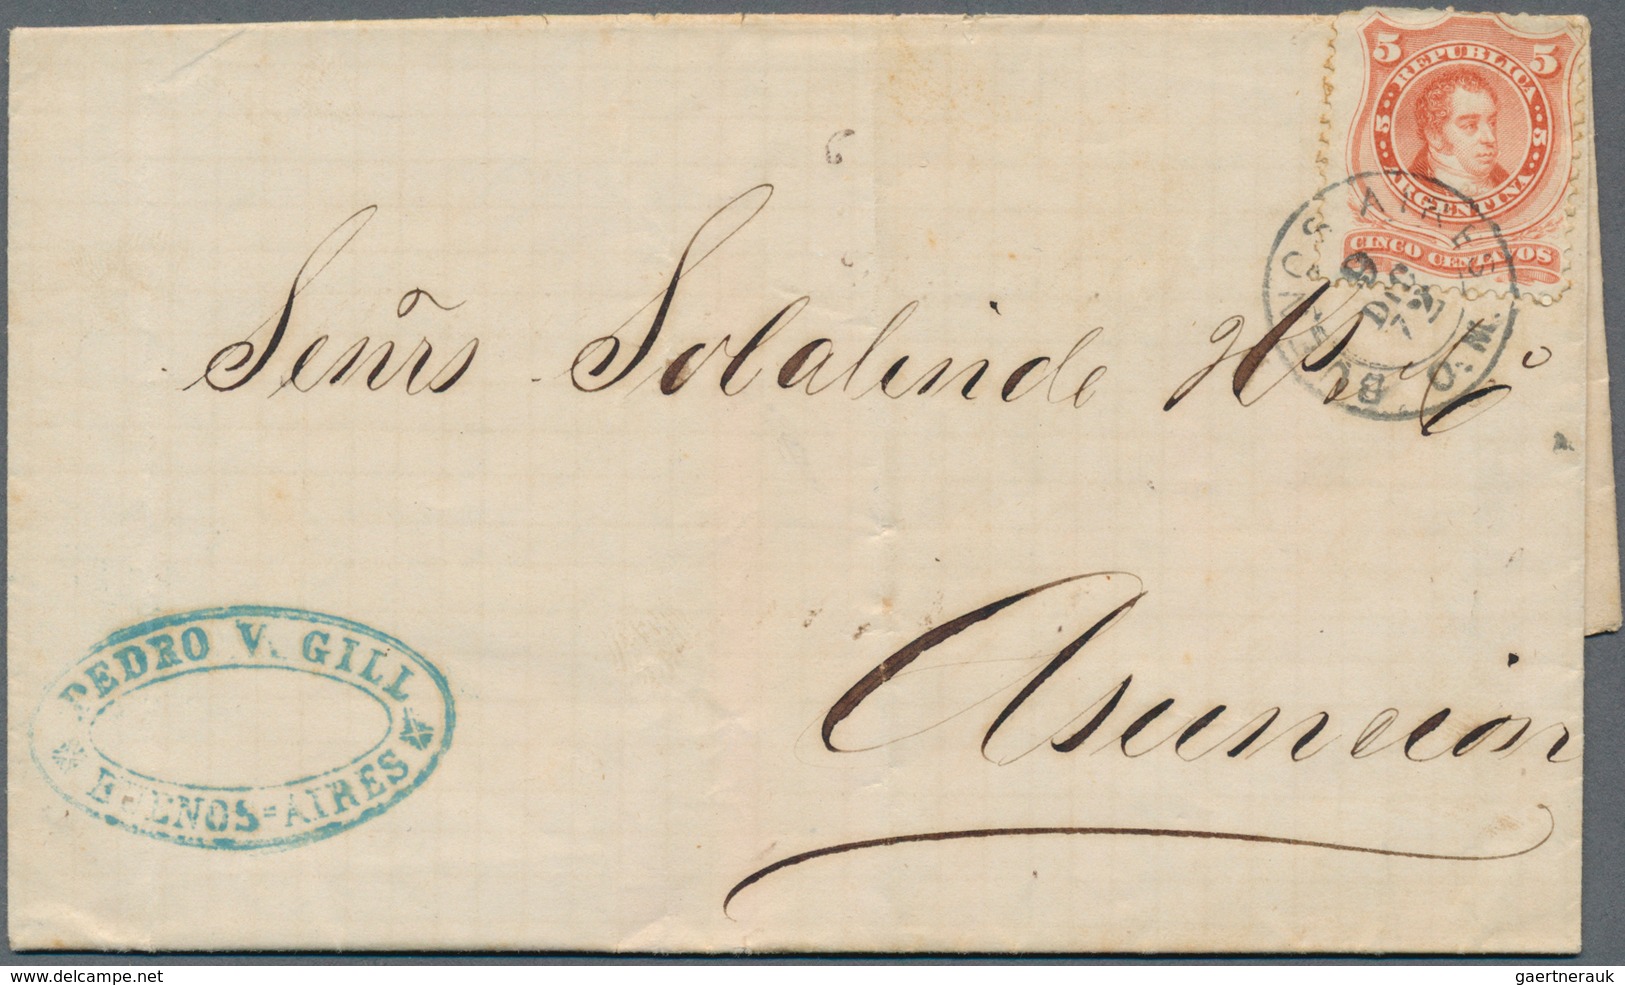 5 5
REPUBLICA
5 5
ARGENTINA
CINCO CENTAVOS
BUENOS AIRES
9
DIC
72
O.M.
6
Señrs Solalinde Hs Cº
Asuncion
PEDRO V. GILL
BUENOS=AIRES
www.delcampe.net
gaertnerauk